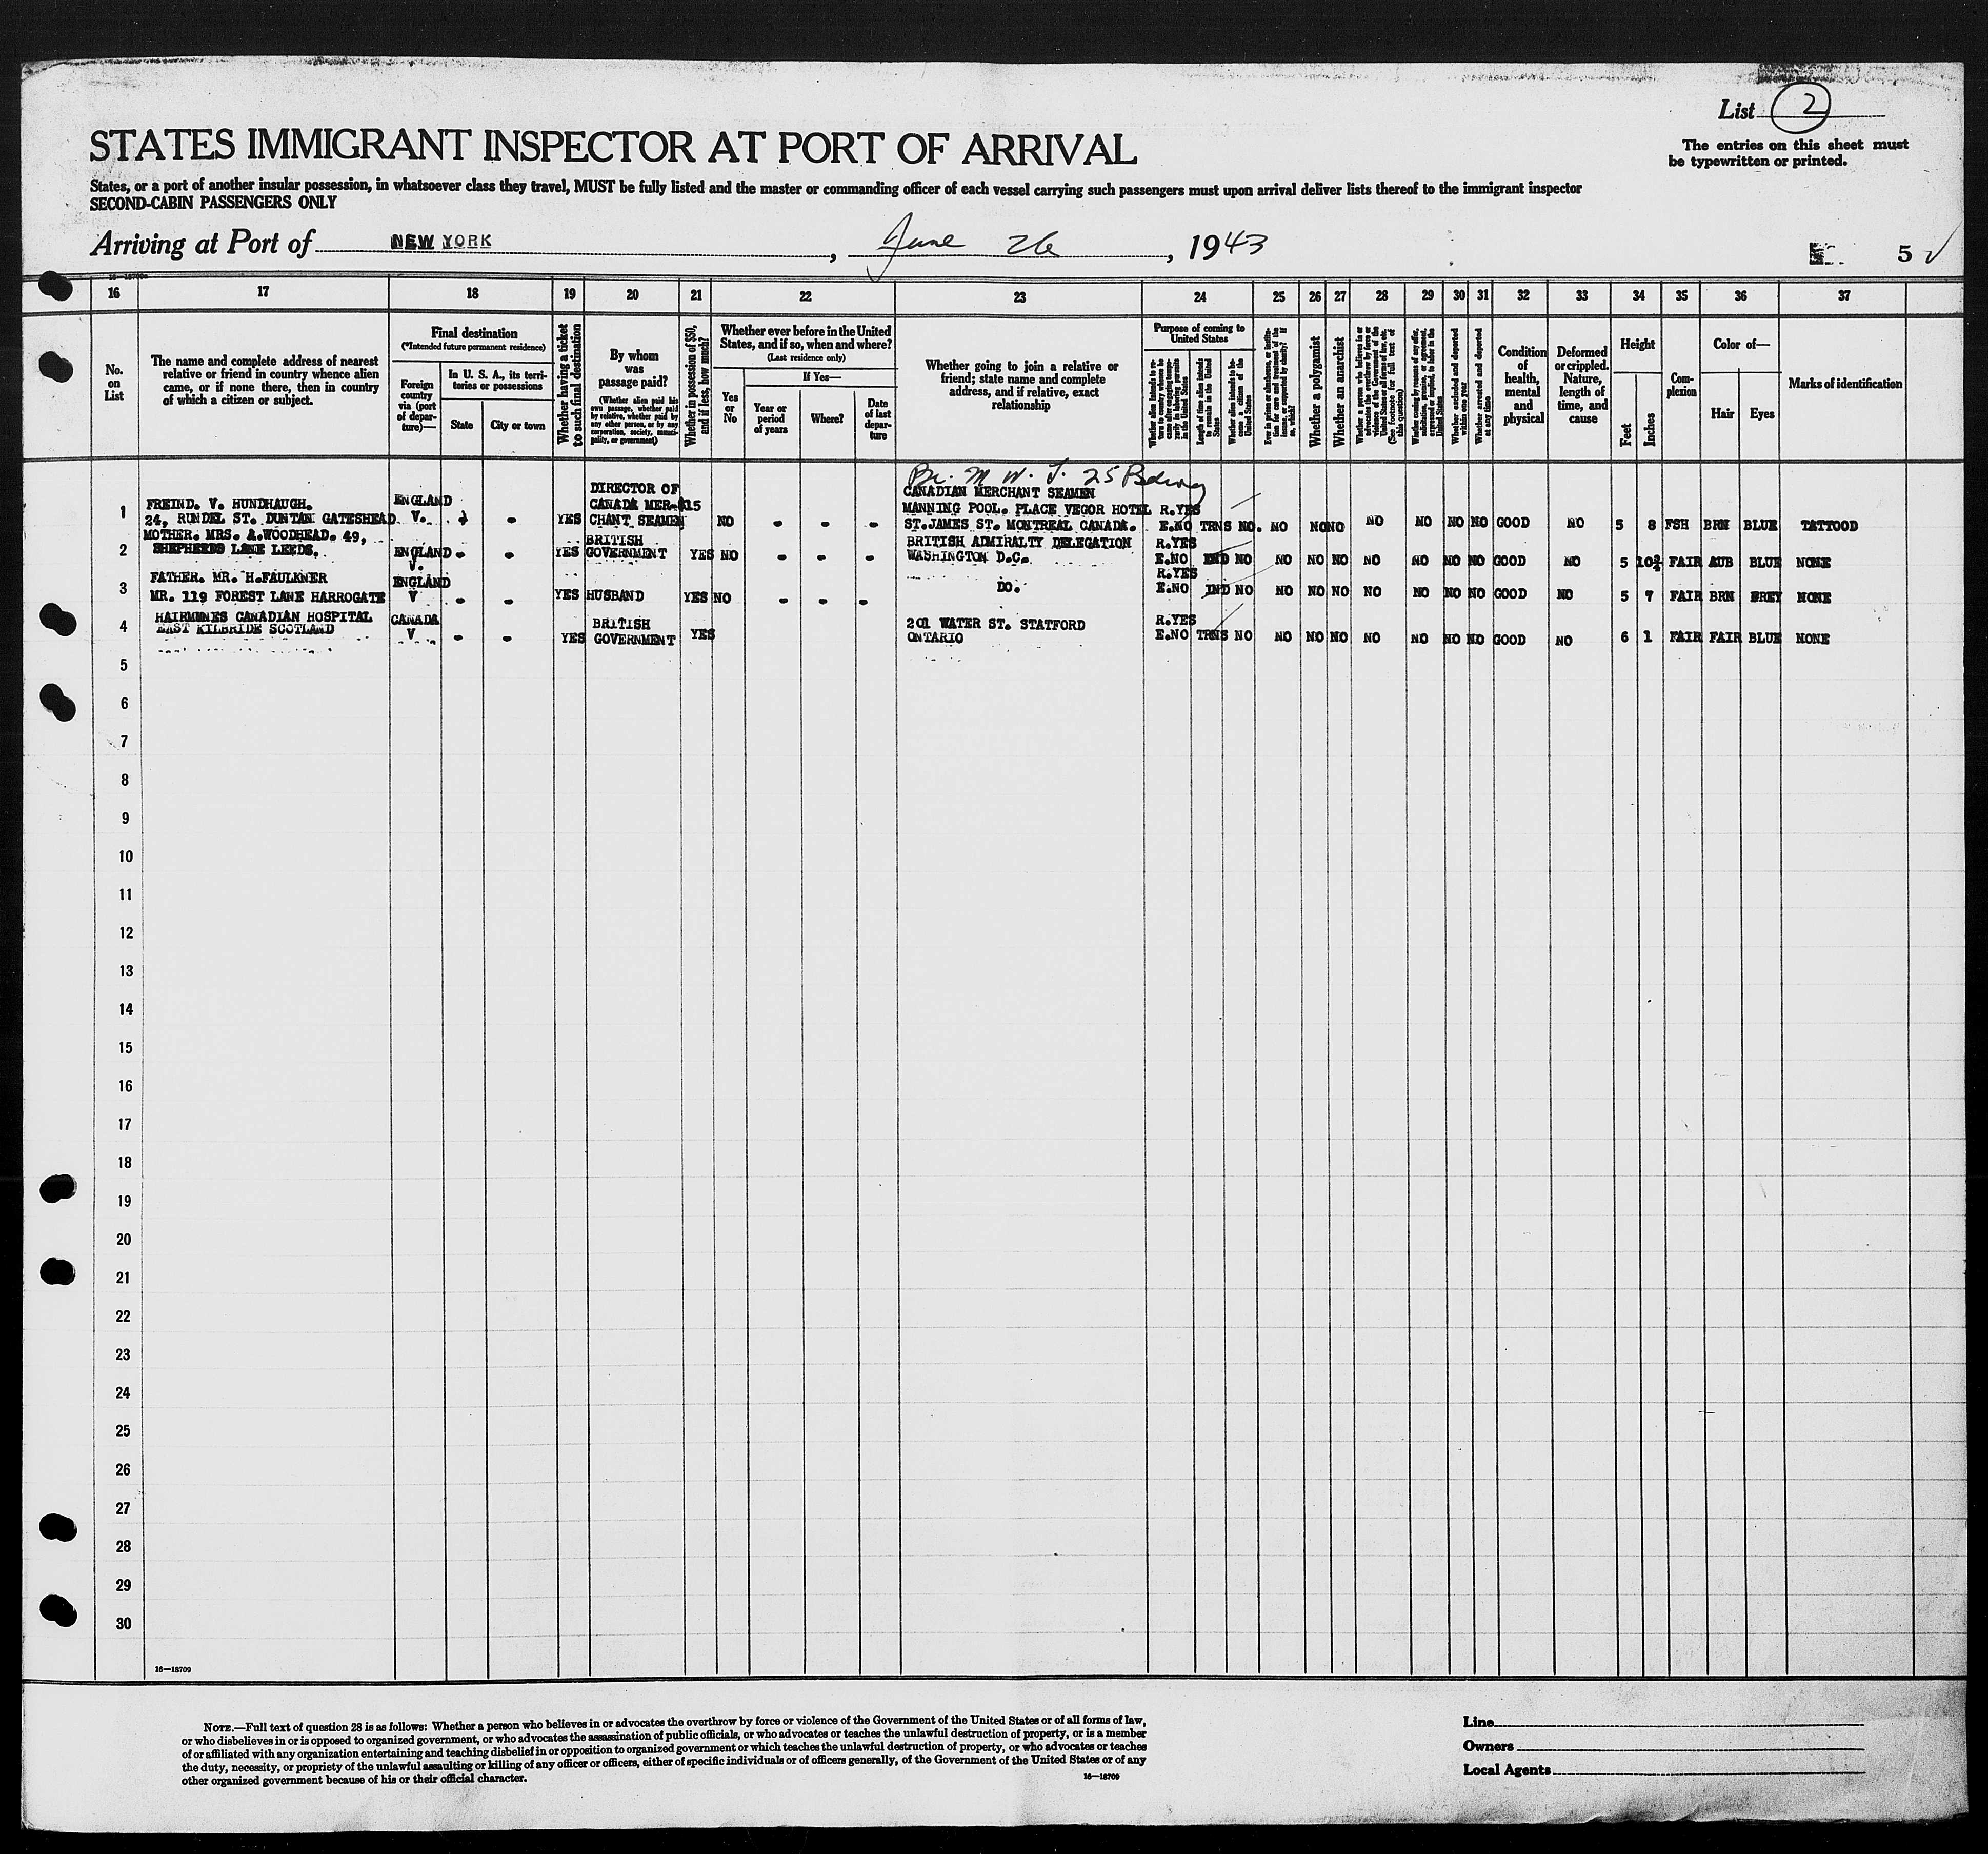 List 2
STATES IMMIGRANT INSPECTOR AT PORT OF ARRIVAL
The entries on this sheet must
be typewritten or printed.
States, or a port of another insular possession, in whatsoever class they travel, MUST be fully listed and the master or commanding officer of each vessel carrying such passengers must upon arrival deliver lists thereof to the immigrant inspector
SECOND-CABIN PASSENGERS ONLY
Arriving at Port of NEW YORK, June 26, 1943
5
16 17 18 19 20 21 22 23 24 25 26 27 28 29 30 31 32 33 34 35 36 37
No.
on
List
The name and complete address of nearest
relative or friend in country whence alien
came, or if none there, then in country
of which a citizen or subject.
Final destination
(*Intended future permanent residence)
Foreign
country
via (port
of depar-
ture)—
In U. S. A., its terri-
tories or possessions
State
City or town
Whether having a ticket
to such final destination
By whom
was
passage paid?
(Whether alien paid his
own passage, whether paid
by relative, whether paid by
any other person, or by any
corporation, society, munici-
pality, or government)
Whether in possession of $50,
and if less, how much?
Whether ever before in the United
States, and if so, when and where?
(Last residence only)
Yes
or
No
If Yes—
Year or
period
of years
Where?
Date
of last
depar-
ture
Whether going to join a relative or
friend; state name and complete
address, and if relative, exact
relationship
Purpose of coming to
United States
Whether alien intends to re-
turn to country whence he
came after engaging tempo-
rarily in laboring pursuits
in the United States
Length of time alien intends
to remain in the United
States
Whether alien intends to be-
come a citizen of the
United States
Ever in prison or almshouse, or institu-
tion for care and treatment of the
insane, or supported by charity? If
so, which?
Whether a polygamist
Whether an anarchist
Whether a person who believes in or
advocates the overthrow by force or
violence of the Government of the
United States or all forms of law, etc.
(See footnote for full text of
this question)
Whether coming by reason of any offer,
solicitation, promise, or agreement,
expressed or implied, to labor in the
United States
Whether excluded and deported
within one year
Whether arrested and deported
at any time
Condition
of
health,
mental
and
physical
Deformed
or crippled.
Nature,
length of
time, and
cause
Height
Feet
Inches
Com-
plexion
Color of—
Hair
Eyes
Marks of identification
1
FREIND. V. HUNDHAUGH.
24, RUNDEL ST. DUNTAN GATESHEAD
ENGLAND
V.
YES
DIRECTOR OF
CANADA MER-
CHANT SEAMEN
$15
NO - - -
CANADIAN MERCHANT SEAMEN
MANNING POOL. PLACE VEGOR HOTEL
ST.JAMES ST. MONTREAL CANADA.
R.YES
E.NO TRNS NO. NO NO NO NO NO NO NO GOOD NO 5 8 FSH BRN BLUE TATTOOD
2
MOTHER. MRS. A.WOODHEAD. 49,
SHEPHERDS LANE LEEDS.
ENGLAND - -
V.
YES
BRITISH
GOVERNMENT
YES NO - - -
BRITISH ADMIRALTY DELEGATION
WASHINGTON D.C.
R.YES
E.NO IND NO NO NO NO NO NO NO NO GOOD NO 5 10¾ FAIR AUB BLUE NONE
3
FATHER. MR. H.FAULKNER
MR. 119 FOREST LANE HARROGATE
ENGLAND
V - -
YES HUSBAND YES NO - - -
DO.
R.YES
E.NO IND NO NO NO NO NO NO NO NO GOOD NO 5 7 FAIR BRN GREY NONE
4
HAIRMYNES CANADIAN HOSPITAL
EAST KILBRIDE SCOTLAND
CANADA
V - -
YES
BRITISH
GOVERNMENT
YES
201 WATER ST. STATFORD
ONTARIO
R.YES
E.NO TRNS NO NO NO NO NO NO NO NO GOOD NO 6 1 FAIR FAIR BLUE NONE
5
6
7
8
9
10
11
12
13
14
15
16
17
18
19
20
21
22
23
24
25
26
27
28
29
30
16—18709
NOTE.—Full text of question 28 is as follows: Whether a person who believes in or advocates the overthrow by force or violence of the Government of the United States or of all forms of law,
or who disbelieves in or is opposed to organized government, or who advocates the assassination of public officials, or who advocates or teaches the unlawful destruction of property, or is a member
of or affiliated with any organization entertaining and teaching disbelief in or opposition to organized government or which teaches the unlawful destruction of property, or who advocates or teaches
the duty, necessity, or propriety of the unlawful assaulting or killing of any officer or officers, either of specific individuals or of officers generally, of the Government of the United States or of any
other organized government because of his or their official character.
16—18709
Line
Owners
Local Agents